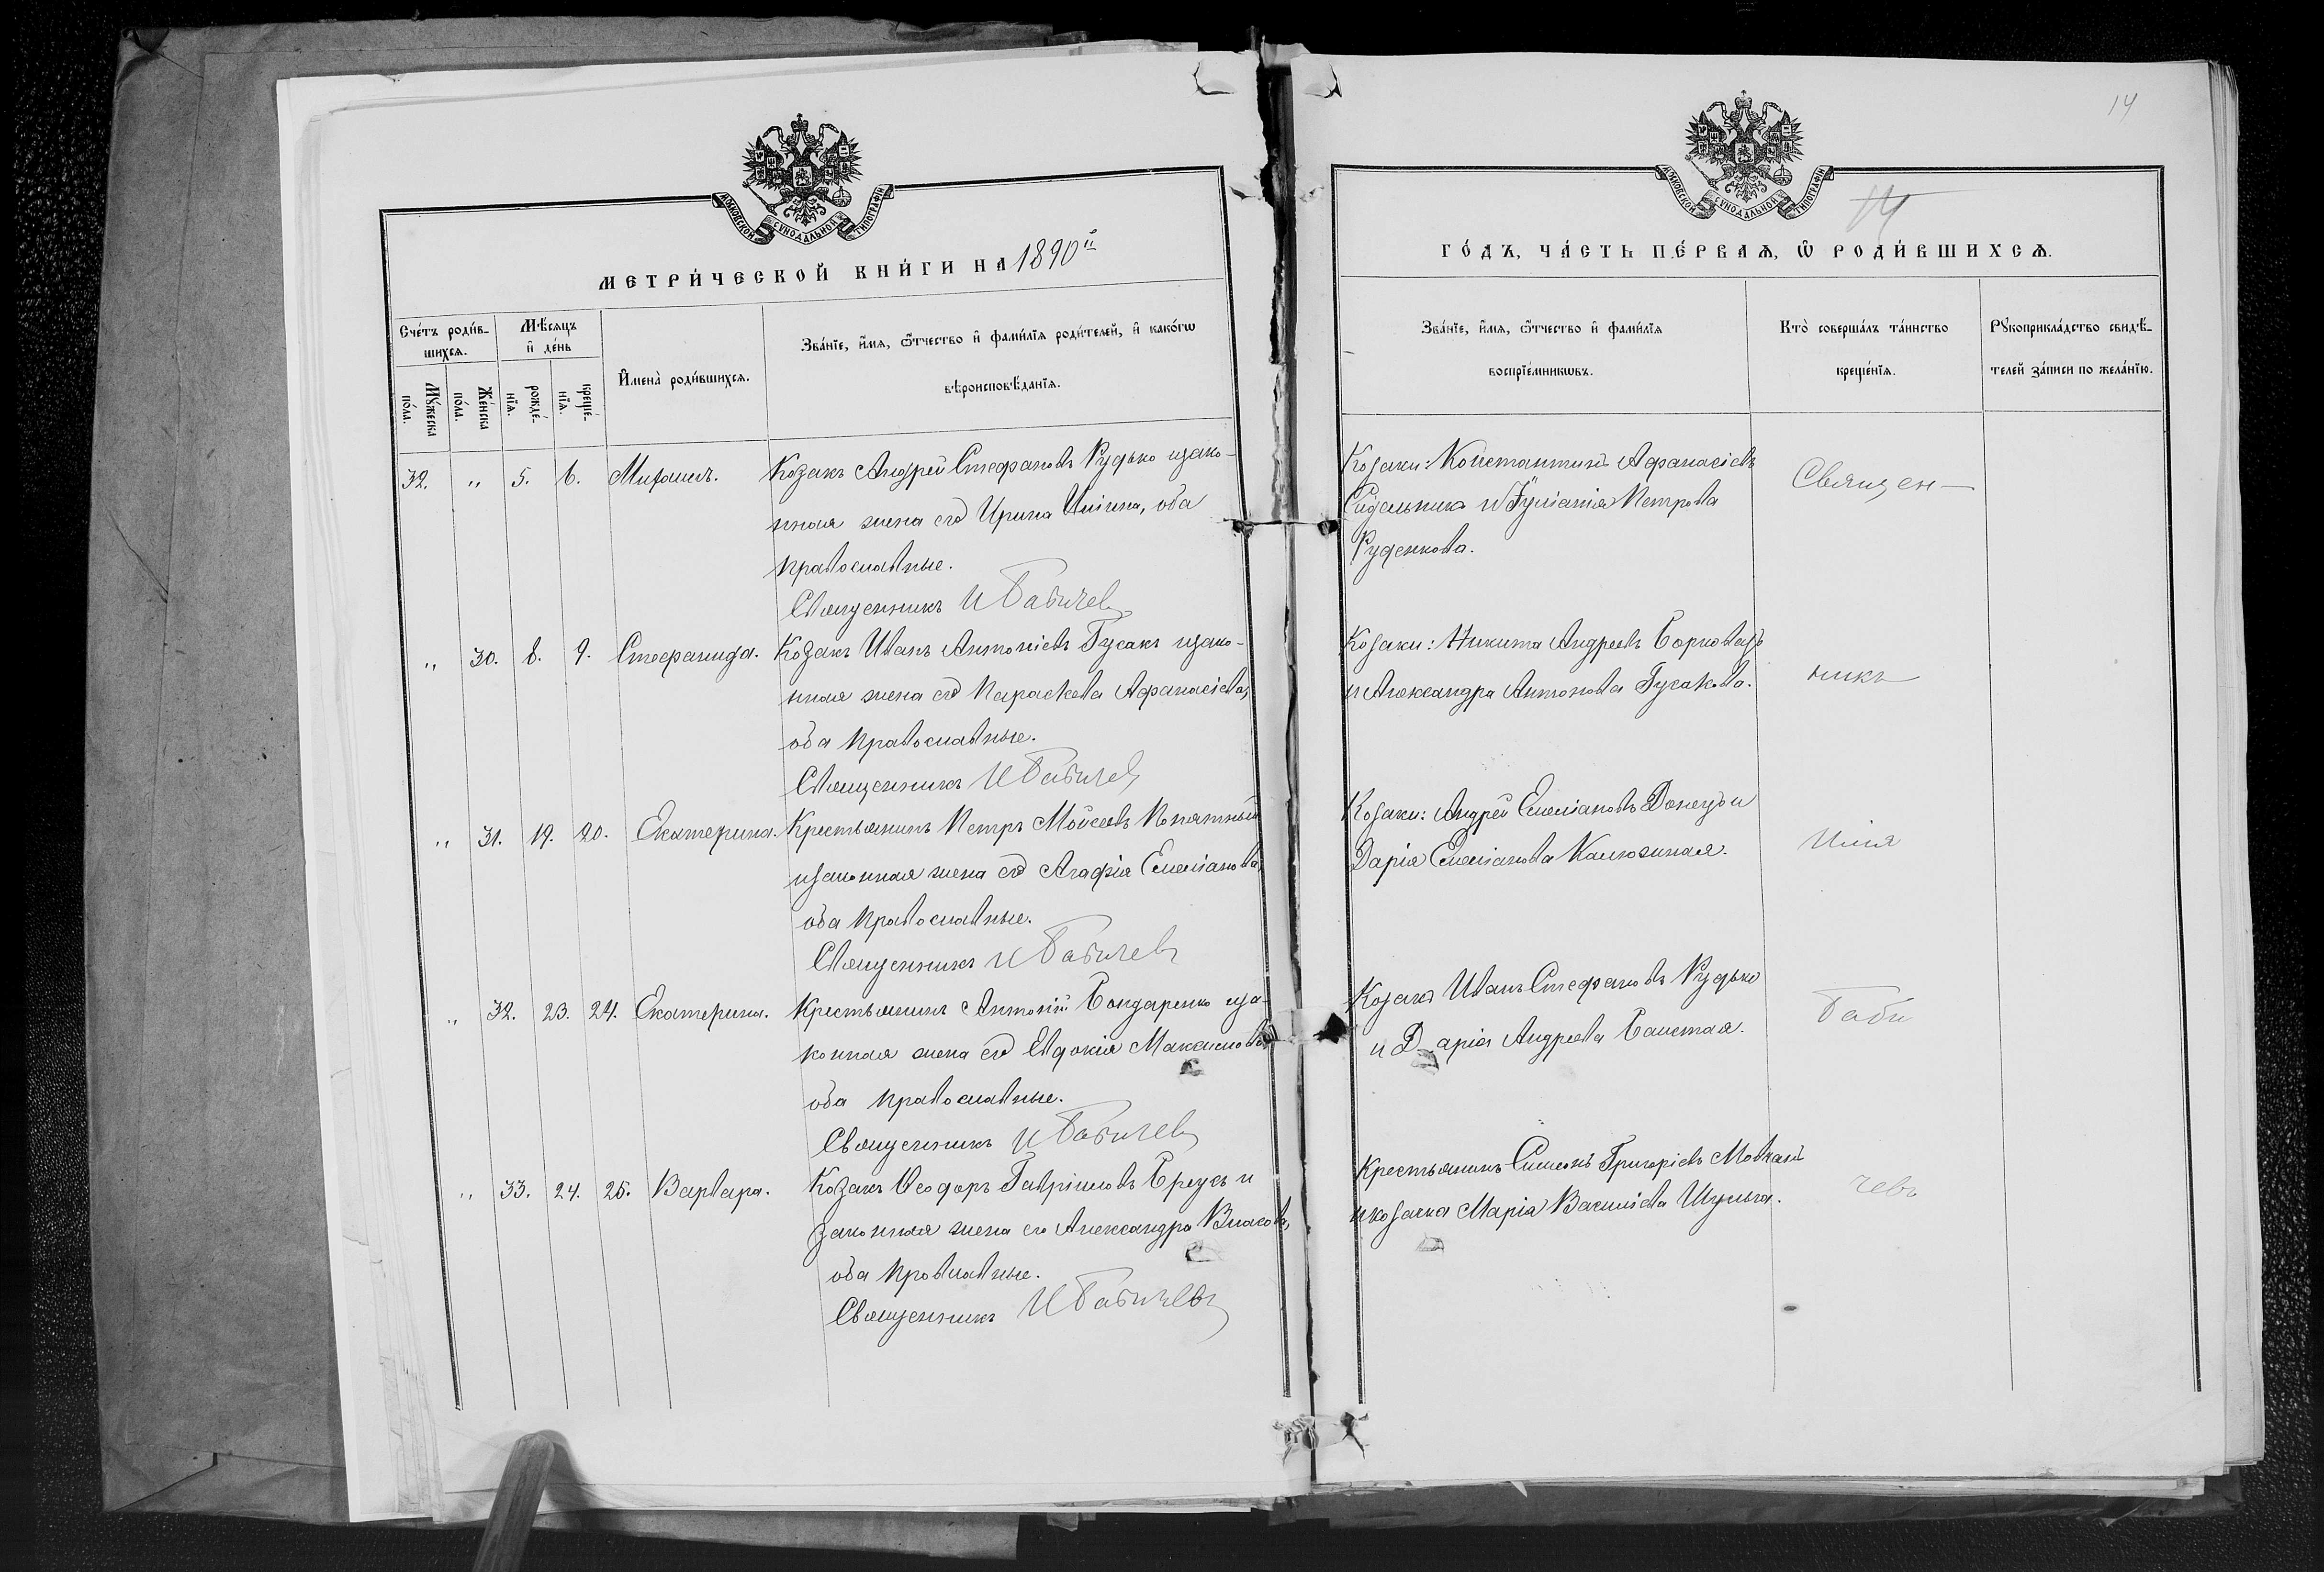 14
14
МОСКОВСКОЙ СѴНОДАЛЬНОЙ ТИПОГРАФІИ
МЕТРИ́ЧЕСКОЙ КНИ́ГИ НА 1890й
Сче́тъ роди́в-
шихся.
Мѣ́сяцъ
и҆ де́нь
Мꙋ́жеска
по́ла.
Же́нска
по́ла.
рожде́-
нїѧ.
креще́-
нїѧ.
И҆мена̀ роди́вшихсѧ.
Зва́нїе, и҆́мѧ, ѻ҆́тчество и҆ фами́лїѧ роди́телей, и҆ како́гѡ
вѣроисповѣ́данїѧ.
32. " 5. 6. Козакъ Андрей Стефановъ Рудько изако-
нная жена его Ирина, оба
православные.
Священникъ И Бабичевъ
" 30. 8. 9. Стефанида. Козакъ Иванъ Антоніевъ Гусакъ изако-
нная жена его Параскева Афанасіева,
оба православные.
Священникъ И Бабичевъ
" 31. 19. 20. Екатерина. Крестьянинъ Петръ Мойсеевъ Попятный
изаконная жена его Агафія Емеліанова,
оба православные.
Священникъ И Бабичевъ
" 32. 23. 24. Екатерина. Крестьянинъ Антоній Бондаренко иза-
конная жена его Евдокія Максимова
оба православные.
Священникъ И Бабичевъ
" 33. 24. 25. Варвара. Козакъ Ѳеодоръ Гавріиловъ и
законная жена его Александра Власова,
оба провславные.
Священникъ И Бабичевъ
МОСКОВСКОЙ СѴНОДАЛЬНОЙ ТИПОГРАФІИ
ГО́ДЪ, ЧА́СТЬ ПЕ́РВАѦ, Ѡ҆ РОДИ́ВШИХСѦ.
Зва́нїе, и҆́мѧ, ѻ҆́тчество и҆ фами́лїѧ
воспрїе́мникѡвъ.
Кто̀ соверша́лъ та́инство
креще́нїѧ.
Рꙋкоприкла́дство свидѣ́-
телей за́писи по жела́нїю.
Козаки: Константинъ Афанасіевъ
Сидельникъ и Іуліанія Петрова
Руденкова.
Священ-
Козаки: Никита Андреевъ
и Александра Антонова Гусакова.
никъ
Козаки: Андрей Емеліановъ Донецъ и
Дарія Емеліанова Калюжная.
Илія
Козакъ Иванъ Стефановъ Рудько
и Дарія Андреева
Баби
Крестьянинъ Симеонъ Григоріевъ Мовчанъ
икозачка Марія Василіева Шульга.
чевъ